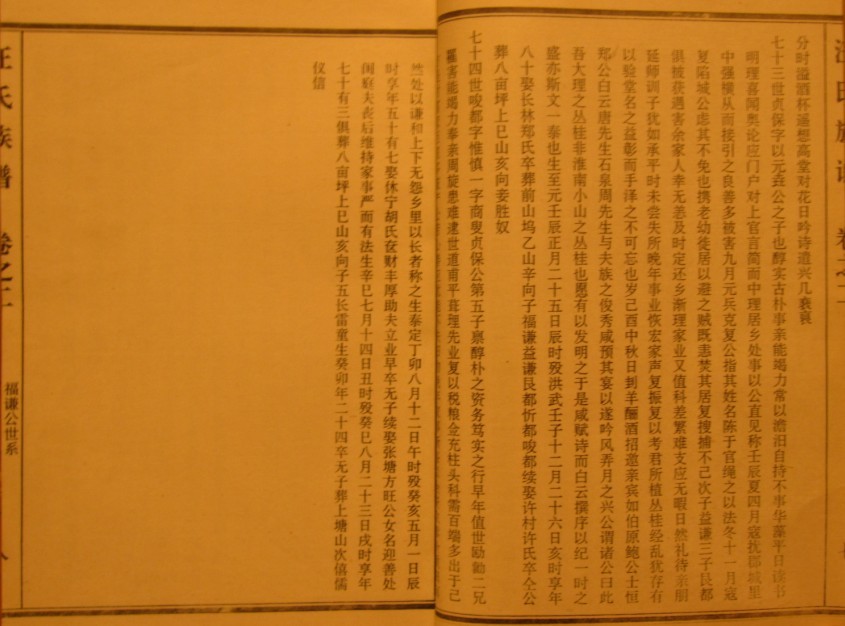 汪氏族谱 卷之二
分时溢酒杯遥想高堂对花日吟诗遣兴几裵裵
七十三世贞保字以元垚公之子也醇实古朴事亲能竭力常以澹泊自持不事华藻平日读书
明理喜闻奥论应门户对上官言简而中理居乡处事以公直见称壬辰夏四月寇扰郡城里
中强横从而接引之良善多被害九月元兵克复公指其姓名陈于官绳之以法冬十一月寇
复陷城公虑其不免也携老幼徙居以避之贼既恚焚其居复搜捕不已次子益谦三子艮都
俱被获遇害余家人幸无恙及时定还乡渐理家业又值科差繁难支应无暇日然礼待亲朋
延师训子犹如承平时未尝失所晚年事业恢宏家声复振复以考君所植丛桂经乱犹存有
以验堂名之益彰而手泽之不可忘也岁己酉中秋日刲羊酾酒招邀亲宾如伯原鲍公士恒
郑公白云唐先生石泉周先生与夫族之俊秀咸预其宴以遂吟风弄月之兴公谓诸公曰此
吾大理之丛桂非淮南小山之丛桂也愿有以发明之于是咸赋诗而白云撰序以纪一时之
盛亦斯文一泰也生至元壬辰正月二十五日辰时殁洪武壬子十二月二十六日亥时享年
八十娶长林郑氏卒葬前山坞乙山辛向子福谦益谦艮都忻都唆都续娶许村许氏卒仝公
葬八亩坪上巳山亥向妾胜奴
七十四世唆都字惟慎一字商叟贞保公第五子禀醇朴之资务笃实之行早年值世励勷二兄
罹害能竭力奉亲周旋患难逮世道甫平葺理先业复以税粮佥充柱头科需百端多出于己
然处以谦和上下无怨乡里以长者称之生泰定丁卯八月十二日午时殁癸亥五月一日辰
时享年五十有七娶休宁胡氏奁财丰厚助夫立业早卒无子续娶张塘方旺公女名迎善处
闺庭夫丧后维持家事严而有法生辛巳七月十四日丑时殁癸巳八月二十三日戌时享年
七十有三俱葬八亩坪上巳山亥向子五长雷童生癸卯年二十四卒无子葬上塘山次僖儒
仪信
汪氏族谱 卷之二
福谦公世系
八